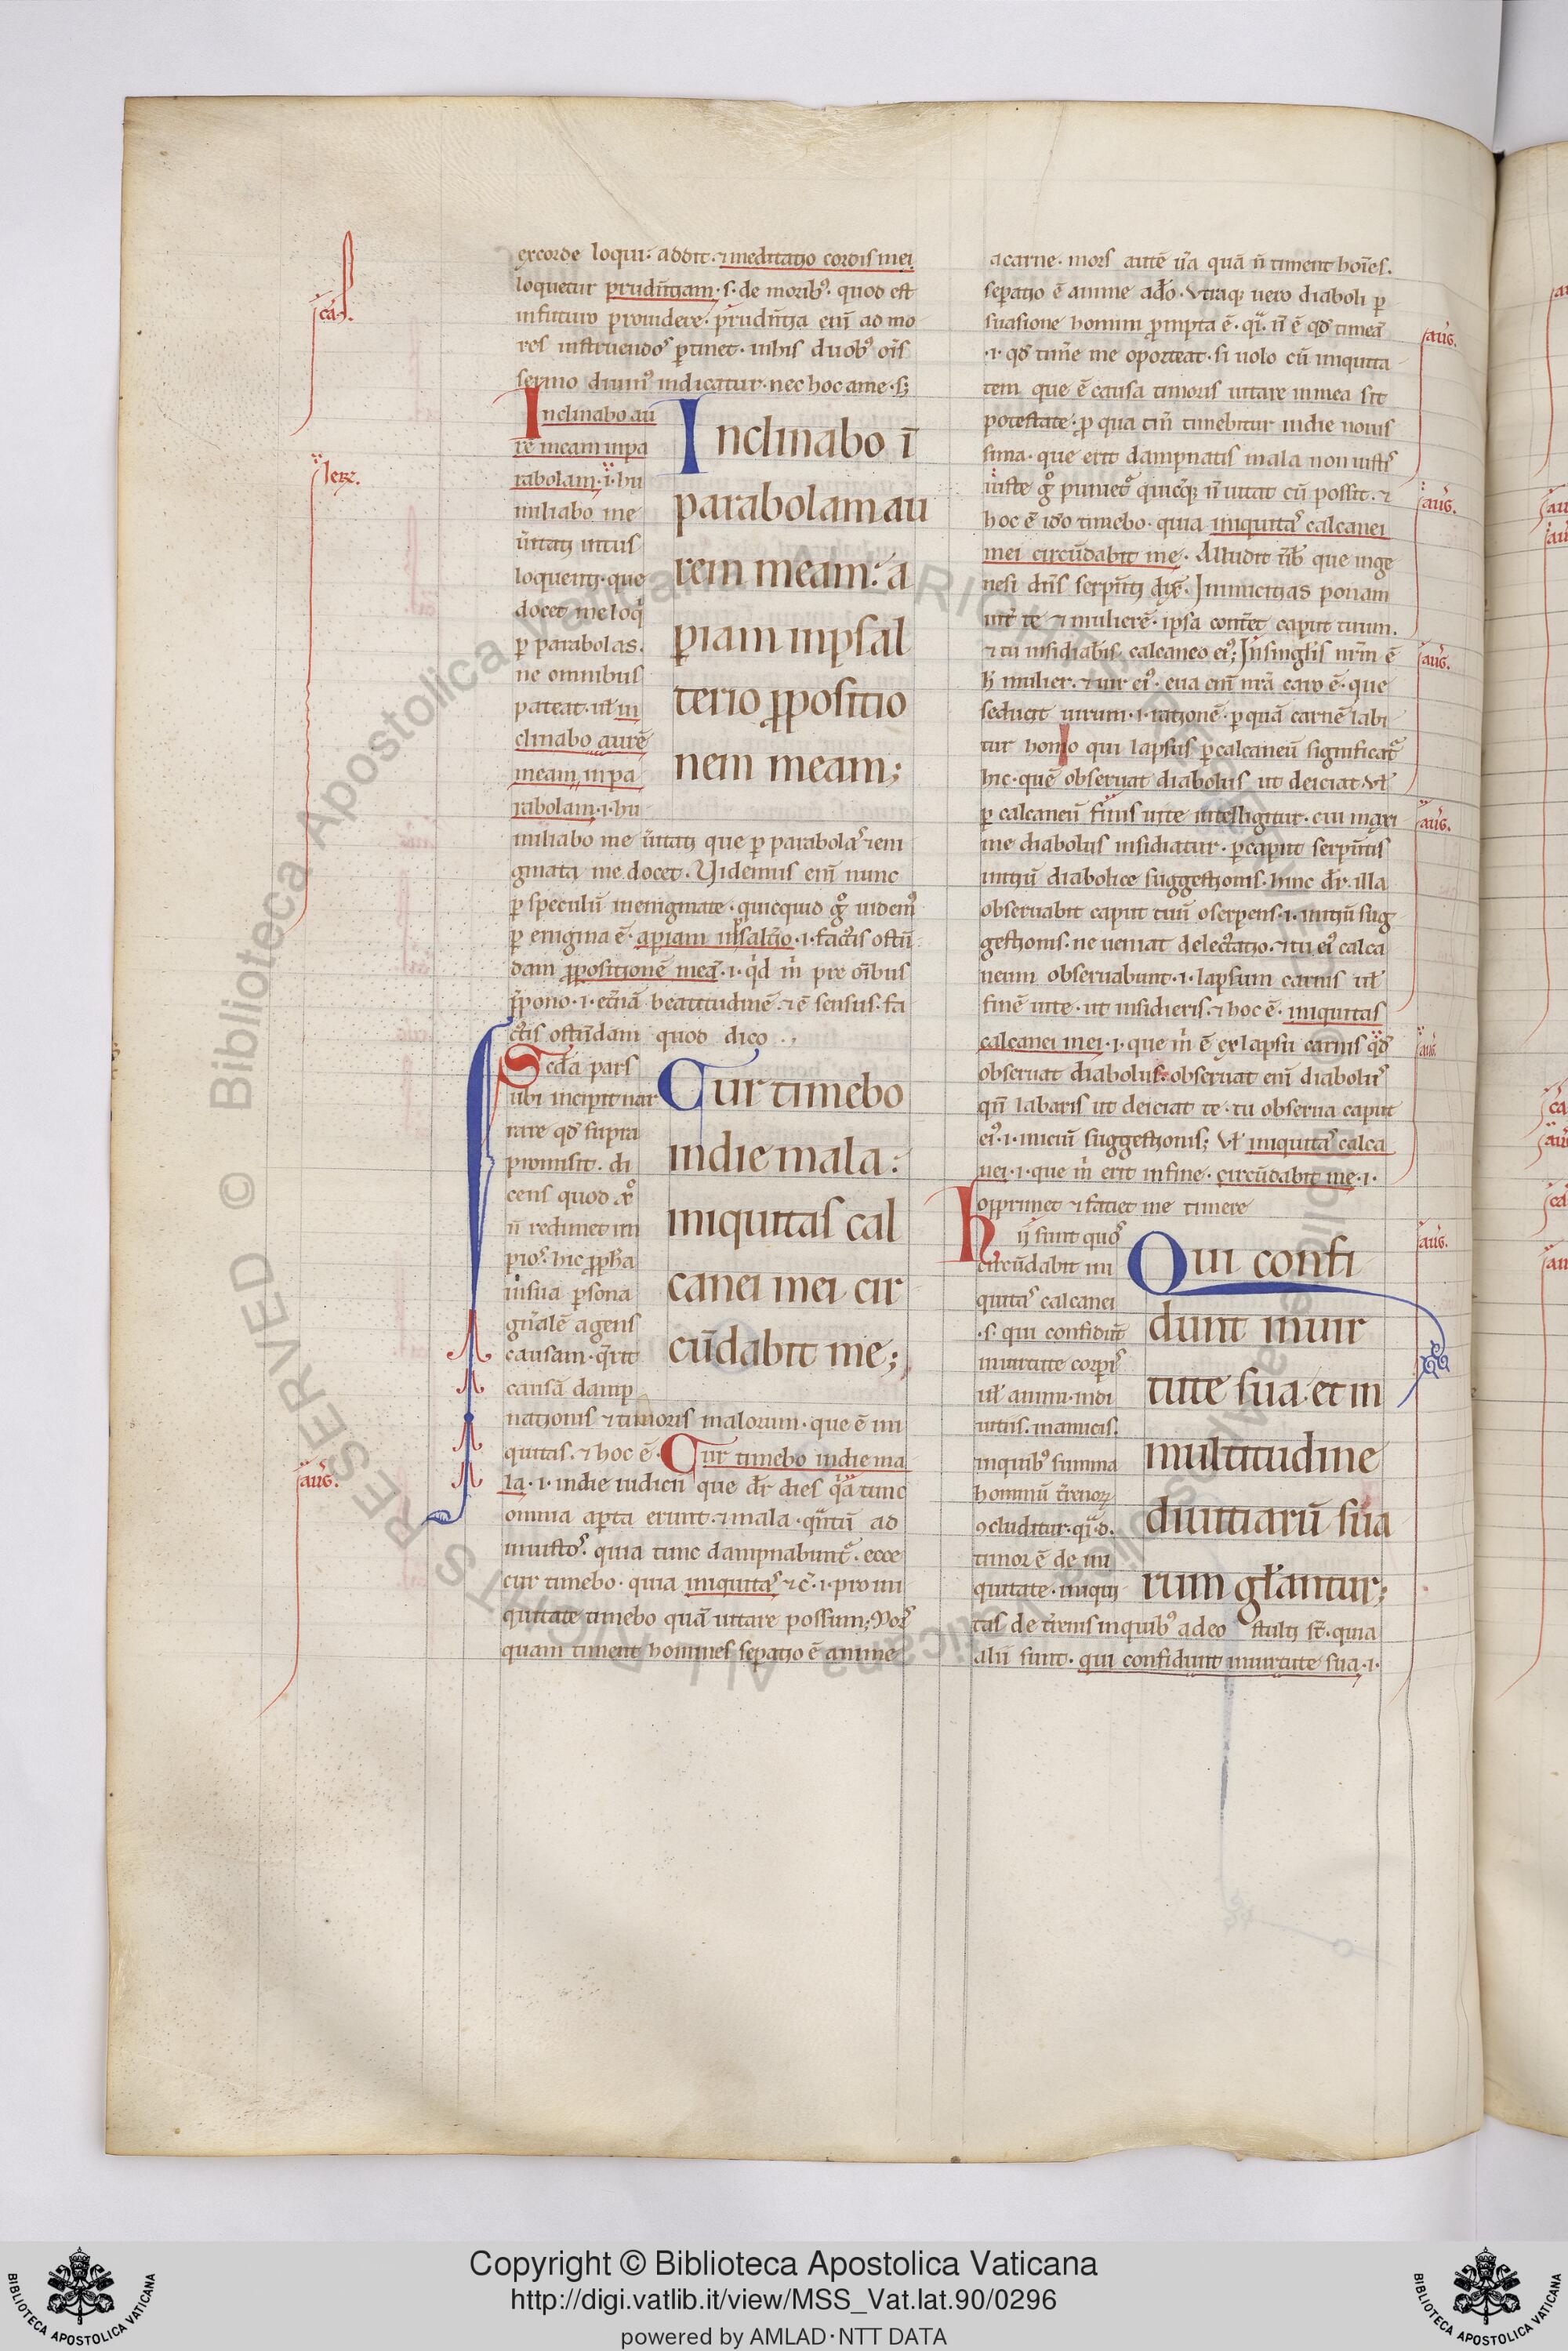 ex corde loqui· addit· ⁊ meditatio cordis mei
loquetur prudn̄tiam·s· de morib᷒· quod est
in futuro prouidere· prudn̄tia eni᷒ ad mo
res instruendos ꝑtinet· in his duob᷒ oīs
sermo diuin᷒ indicatur· nec hoc a me·sꝫ
Inclinabo au
re meam in pa
rabolam·i·hu
miliabo me
ūitati intus
loquenti· que
docet me loqͥ
ꝑ parabolas·
ne omnibus
pateat· ul̄ in
clinabo aurē
meam in pa
rabolam·i·hu
miliabo me ūitati que ꝑ parabolas ⁊ eni
gmata me docet· Videmus eni᷒ nunc
ꝑ speculū in enigmate· quicquid gͦ videm᷒
ꝑ enigma ē· aperiam in psalt̄io·i· factis ostē
dam ꝓpositionē meā·i· qͥd m̄ pre oībus
ꝓpono·i· et̄nā beatitudinē· ⁊ ē sensus· fa
ctis ostēdam quod dico·
Inclinabo ī
parabolam au
rem meam: a
periam in psal
terio ꝓpositio
nem meam;
Sēda pars
ubi incipit nar
rare qd̄ supra
promisit· di
cens quod xͦ
n̄ redimet im
pios· hic ꝓph̄a
in sua ꝑsona
gn̄alē agens
causam· q̄rit
causā damp
nationis ⁊ timoris malorum· que ē ini
quitas· ⁊ hoc ē· Cur timebo in die ma
la·i· in die iudicii que dr̄ dies qͥa tunc
omnia aꝑta erunt· ⁊ mala· qͣntū ad
iniustos· quia tunc dampnabunt᷒· ecce
cur timebo· quia iniquitas ⁊ c̄·i· pro ini
quitate timebo quā uitare possum; Mors
quam timent homines seꝑatio ē anime
Cur timebo
in die mala:
iniquitas cal
canei mei cir
cūdabit me;
a carne· mors autē ūa quā n̄ timent hoīes·
seꝑatio ē anime a dō· Vtraqꝫ uero diaboli ꝑ
suasione homini prompta ē· qͥ· n̄ ē qd̄ timeā
·i· qd̄ tim̄e me oporteat· si uolo cū iniquita
tem que ē causa timoris uitare in mea sit
potestate· ꝓ qua tm̄ timebitur in die nouis
sima· que erit dampnatis mala non iustis
iuste gͦ puniet᷒ quicqͥꝫ n̄ uitat cū possit· ⁊
hoc ē idō timebo· quia iniquitas calcanei
mei circūdabit me· Alludit ūb̄ que in ge
nesi dn̄s serpn̄ti dixͭ· Inimicitias ponam
int̄ te ⁊ mulierē· ipsa contēt caput tuum·
⁊ tu insidiab̄is calcaneo ei᷒; In singl̄is nr̄m ē
h̄ mulier· ⁊ uir ei᷒· eua eni᷒ nr̄a caro ē· que
seducit uirum·i· rationē· ꝑ quā carnē labi
tur homo qui lapsus ꝑ calcaneū significat᷒
hic· quē obseruat diabolus ut deiciat· Vl̄
ꝑ calcaneū finis uite intelligitur· cui maxi
me diabolus insidiatur· ꝑ caput serpn̄tis
initiū diabolice suggestionis· hinc dr̄· illa
obseruabit caput tuū o serpens·i· initiū sug
gestionis· ne ueniat delectatio· ⁊ tu ei᷒ calca
neum obseruabunt·i· lapsum carnis ul̄
finē uite· ut insidieris· ⁊ hoc ē· iniquitas
calcanei mei·i· que m̄ ē ex lapsu carnis qd̄
obseruat diabolus· obseruat eni᷒ diabolus
qn̄ labaris ut deiciat te· tu obserua caput
ei᷒·i· iniciū suggestionis; Vl̄ iniquitas calca
nei·i· que m̄ erit in fine· circūdabit me·i·
opprimet ⁊ faciet me timere
Hii sunt quos
circūdabit ini
quitas calcanei
·s· qui confidūt
in uirtute corpīs
ul̄ animi· in di
uitiis· in amicis·
in quib᷒ summa
hominū t̄renoꝝ
ɔcluditur· qͣ·d·
timor ē de ini
quitate· iniqui
tas de t̄renis in quib᷒ adeo stulti st̄· quia
alii sunt· qui confidunt in uirtute sua·i·
Qui confi
dunt in uir
tute sua· et in
multitudine
diuitiarū sua
rum gl̄antur;
ca·
Ier·
aug·
aug·
aug·
aug·
aug·
aug·
aug·
Copyright © Biblioteca Apostolica Vaticana
http://digi.vatlib.it/view/MSS_Vat.lat.90/0296
powered by AMLAD·NTT DATA
BIBLIOTECA APOSTOLICA VATICANA
BIBLIOTECA APOSTOLICA VATICANA